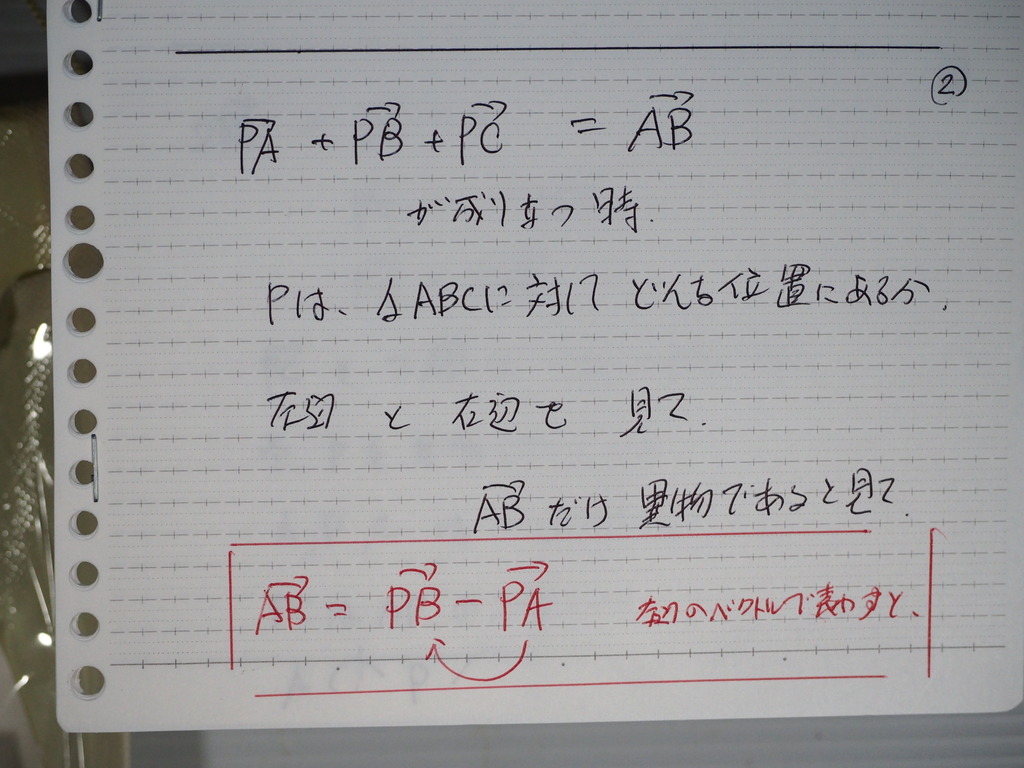 ②
PA→ + PB→ + PC→ = AB→
が成り立つ時.
Pは、△ABCに対して どんな位置にあるか.
左辺 と 右辺を 見て.
AB→ だけ 異物であると見て.
AB→ = PB→ − PA→ 左辺のベクトルで表わすと、